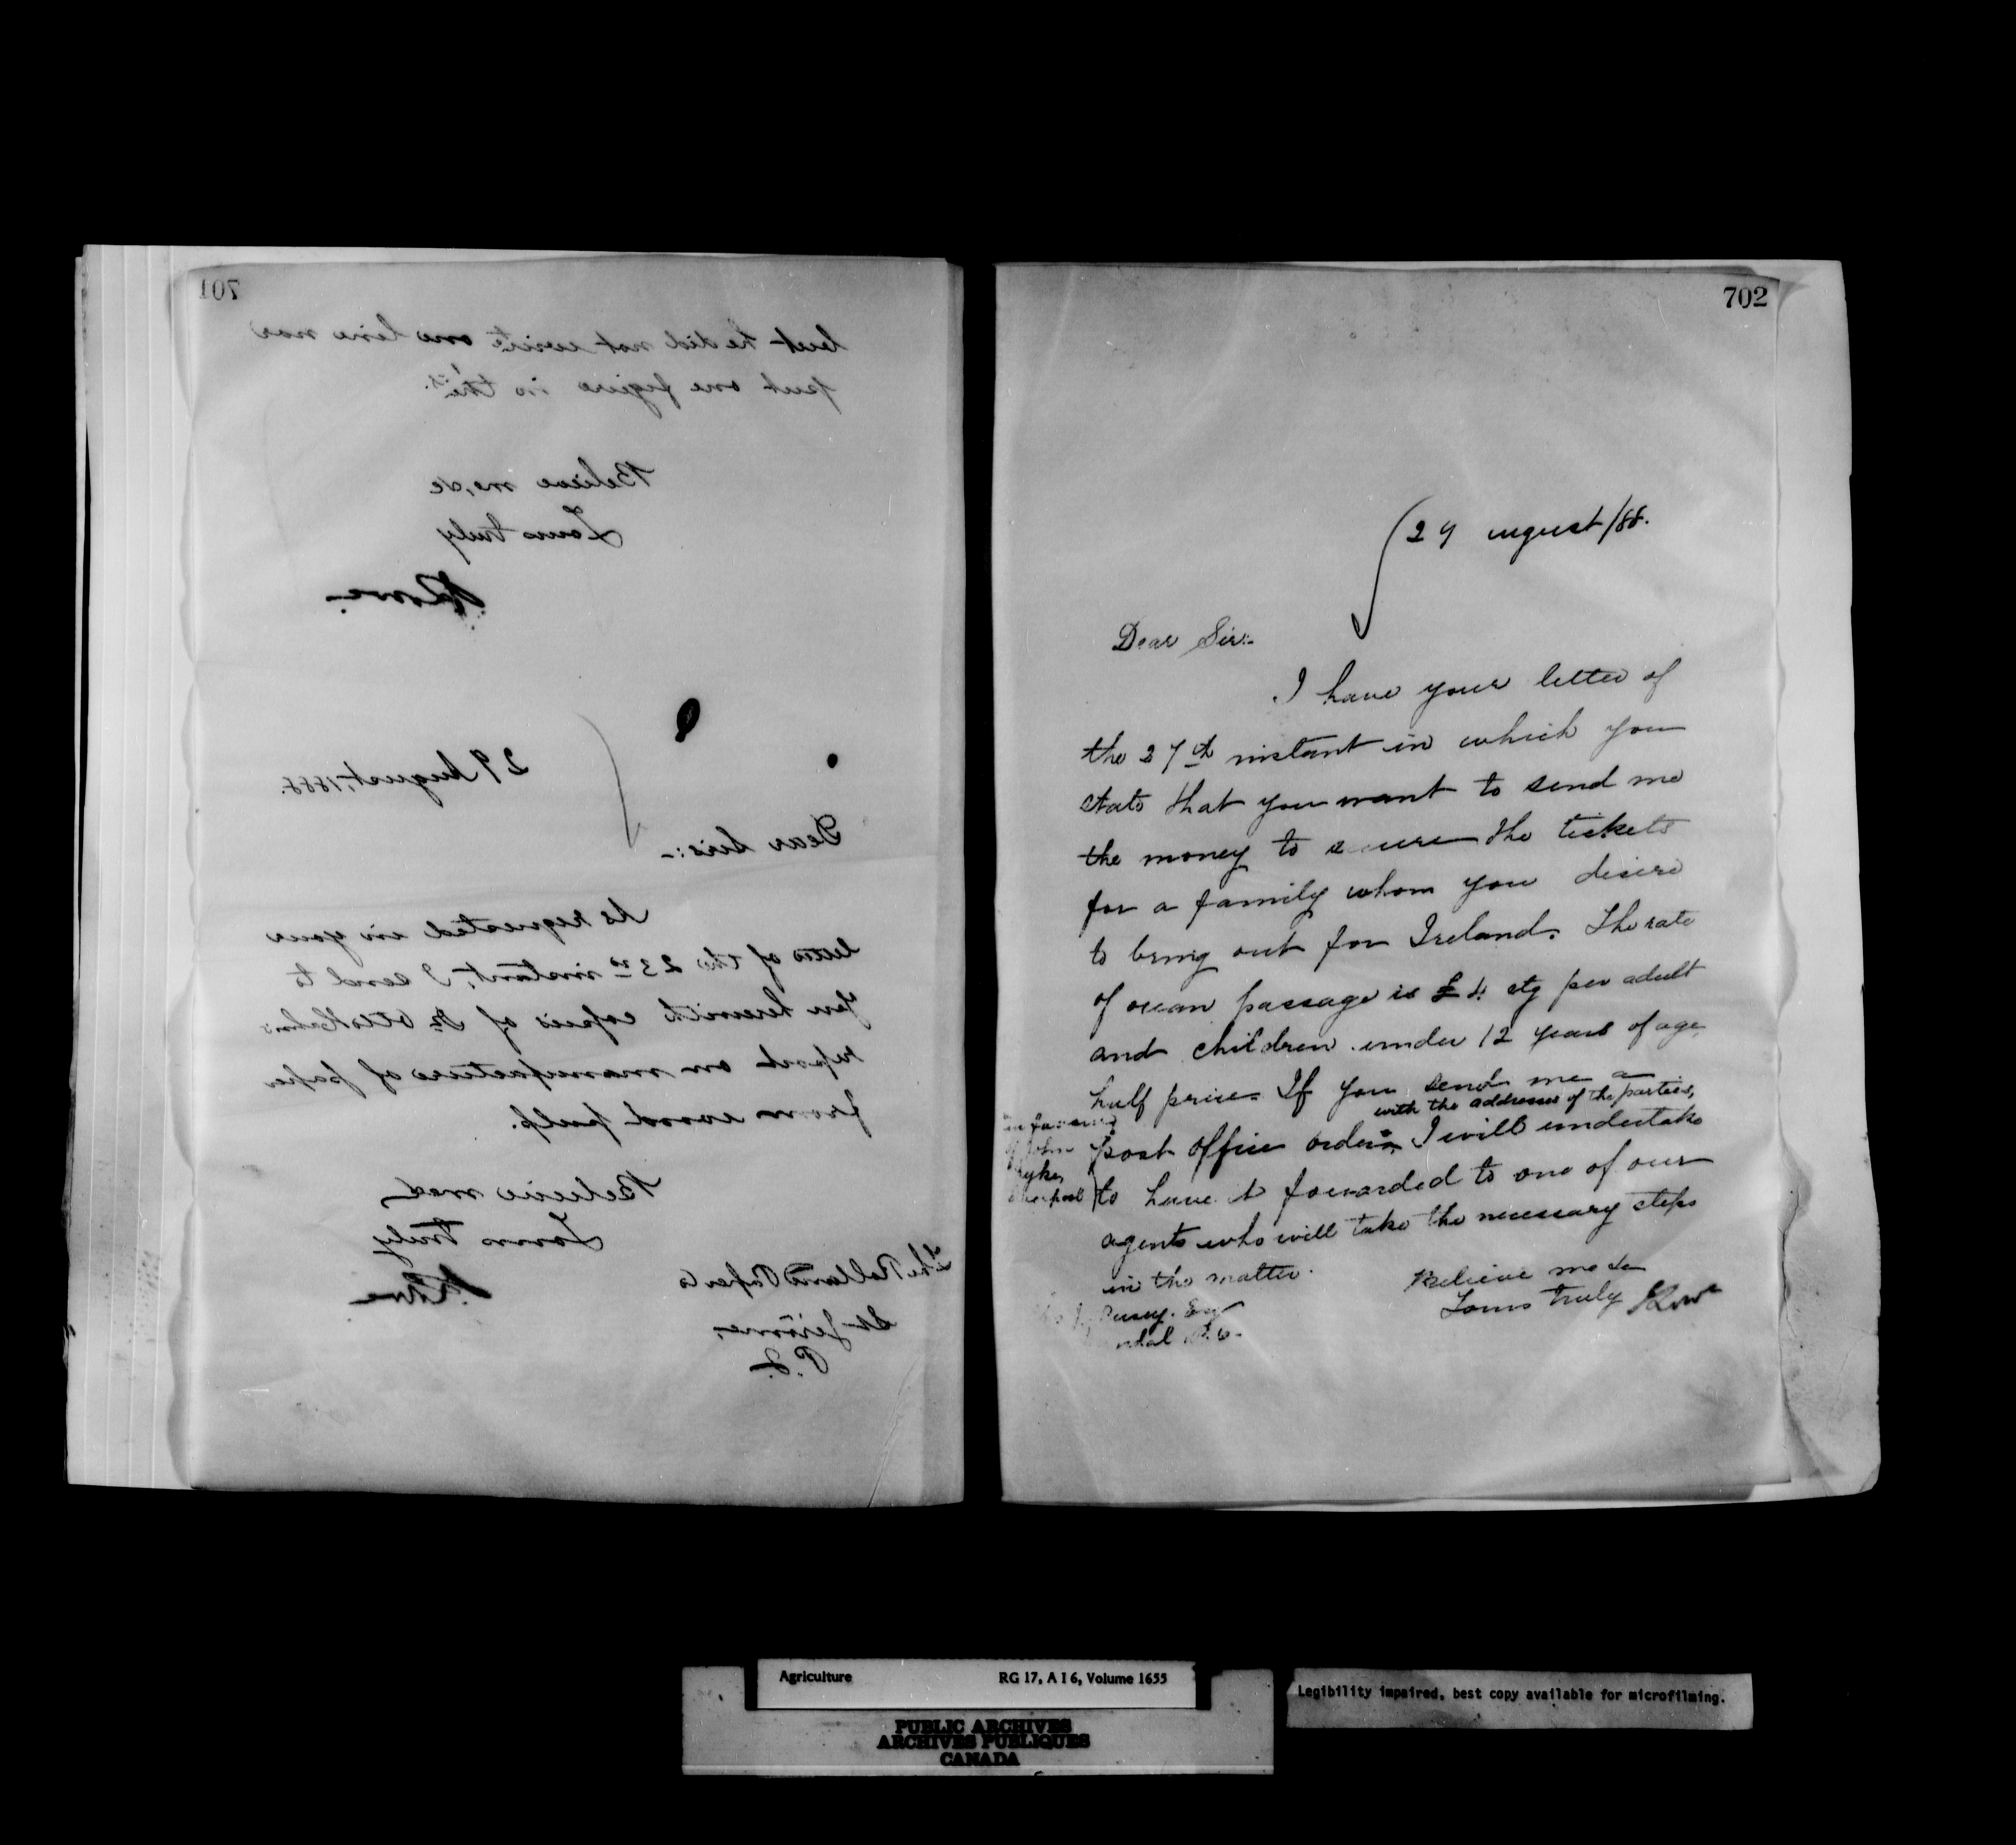 701
but he did not write one line nor
put one figure in this.
Believe me, &c
Yours truly
29 August, 1888.
Dear Sirs:-
As requested in your
letter of the 23rd instant, I send to
you herewith copies of Dr
report on manufacture of paper
from wood pulp.
Believe me &c
Yours truly
The Rolland Paper Co
St Jérôme,
P.Q.
702
29 ugust/88.
Dear Sir:-
I have your letter of
the 27th instant in which you
state that you want to send me
the money to secure the tickets
for a family whom you desire
to bring out for Ireland. The rate
of ocean passage is £4 stg per adult
and children under 12 years of age,
half price. If you send me a
with the addresses of the parties,
in favour
of John
Dyke,
Liverpool
post office order, I will undertake
to have it forwarded to one of our
agents who will take the necessary steps
in the matter.
Believe me &c
Yours truly
Pusey. Esq
Agriculture RG 17, A I 6, Volume 1655
PUBLIC ARCHIVES
ARCHIVES PUBLIQUES
CANADA
Legibility impaired, best copy available for microfilming.